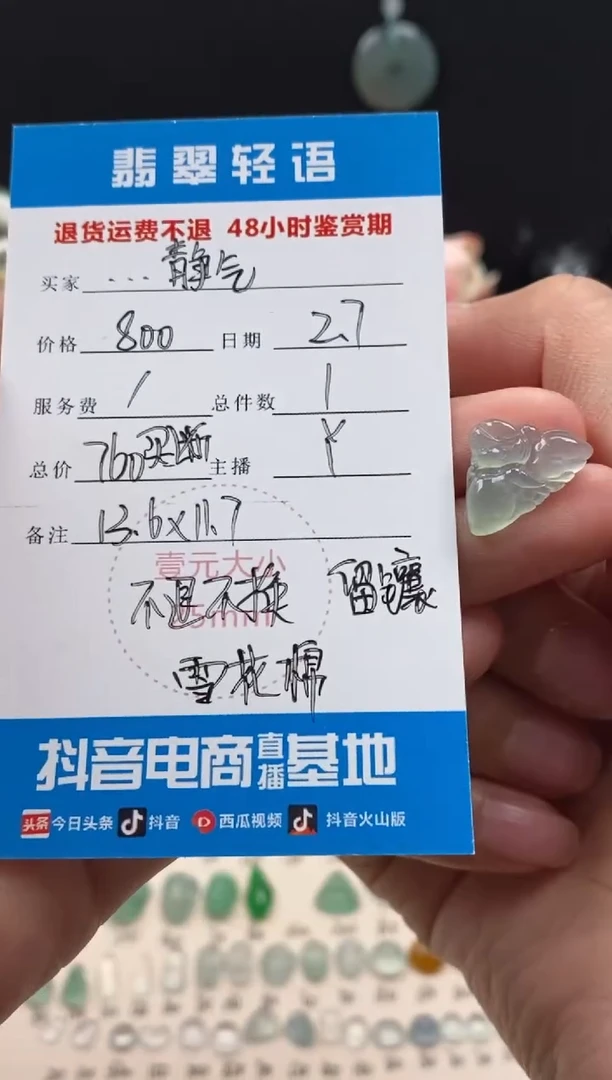 翡翠轻语
退货运费不退 48小时鉴赏期
买家 ...静气
价格 800 日期 2.7
服务费 / 总件数 1
总价 760买断 主播 Y
备注 13.6x11.7
壹元大小
不退不换 留镶
25mm
雪花棉
抖音电商直播基地
头条 今日头条 抖音 西瓜视频 抖音火山版